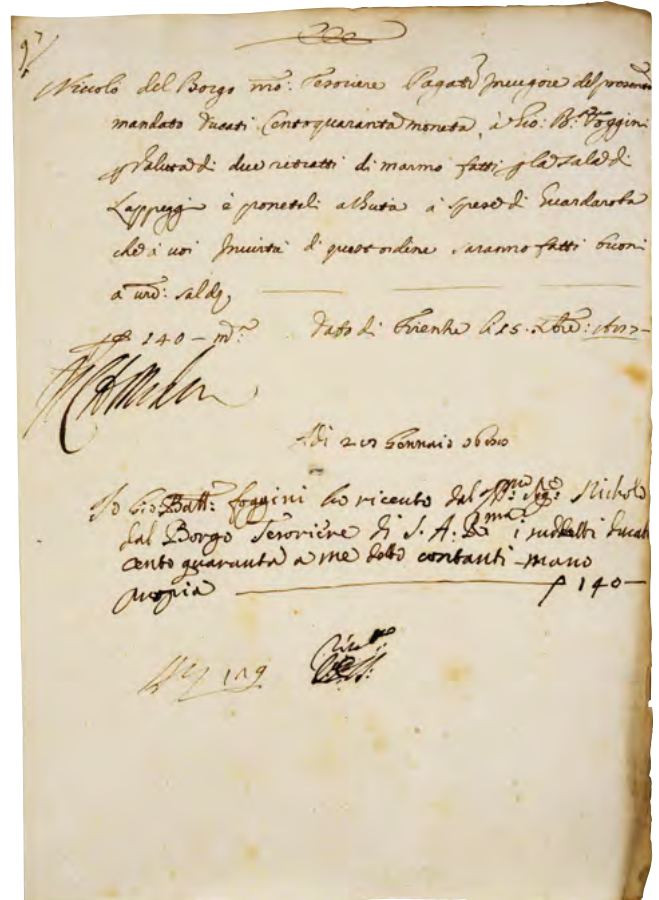 97
Niccolò del Borgo nro: Tesoriere Pagate In vigore del presente
mandato Ducati Centoquaranta moneta, à Gio: Bta. Foggini
p Valuta di due retratti di marmo fatti p la sala di
Lappeggi è poneteli all uscita à spese di Guardaroba
che à voi In virtù di quest ordine saranno fatti buoni
a vri: saldi
140 — mta: Dato di Firenze li 15. Xbre:
Adi Gennaio
Io Gio Batt: foggini ho riceuto dal Sig: Nicholo
dal Borgo Tesoriere di S. A. Rma: i suddetti ducati
cento quaranta a me detto contanti – mano
propia 140 —
129